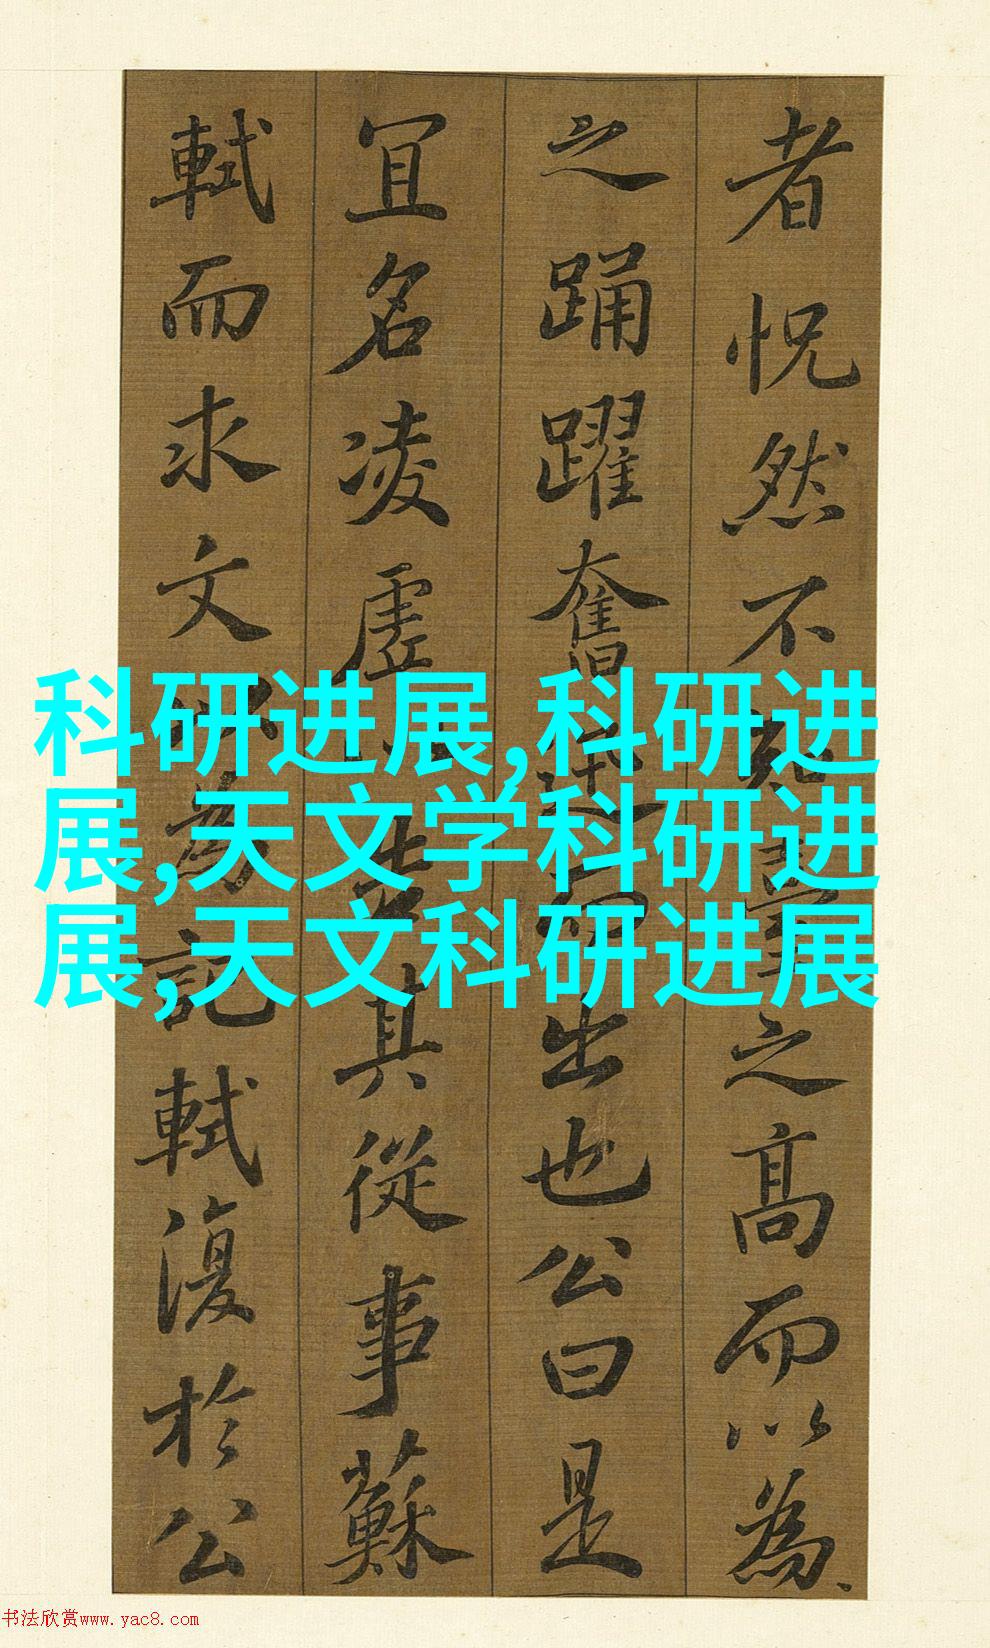 者怳然不知臺之髙而以為
之踊躍奮迅而出也公曰是
冝名凌虛以告其從事蘇
軾而求文以為記軾復於公
科研进展,科研进
展,天文学科研进
展,天文科研进展
书法欣赏www.yac8.com